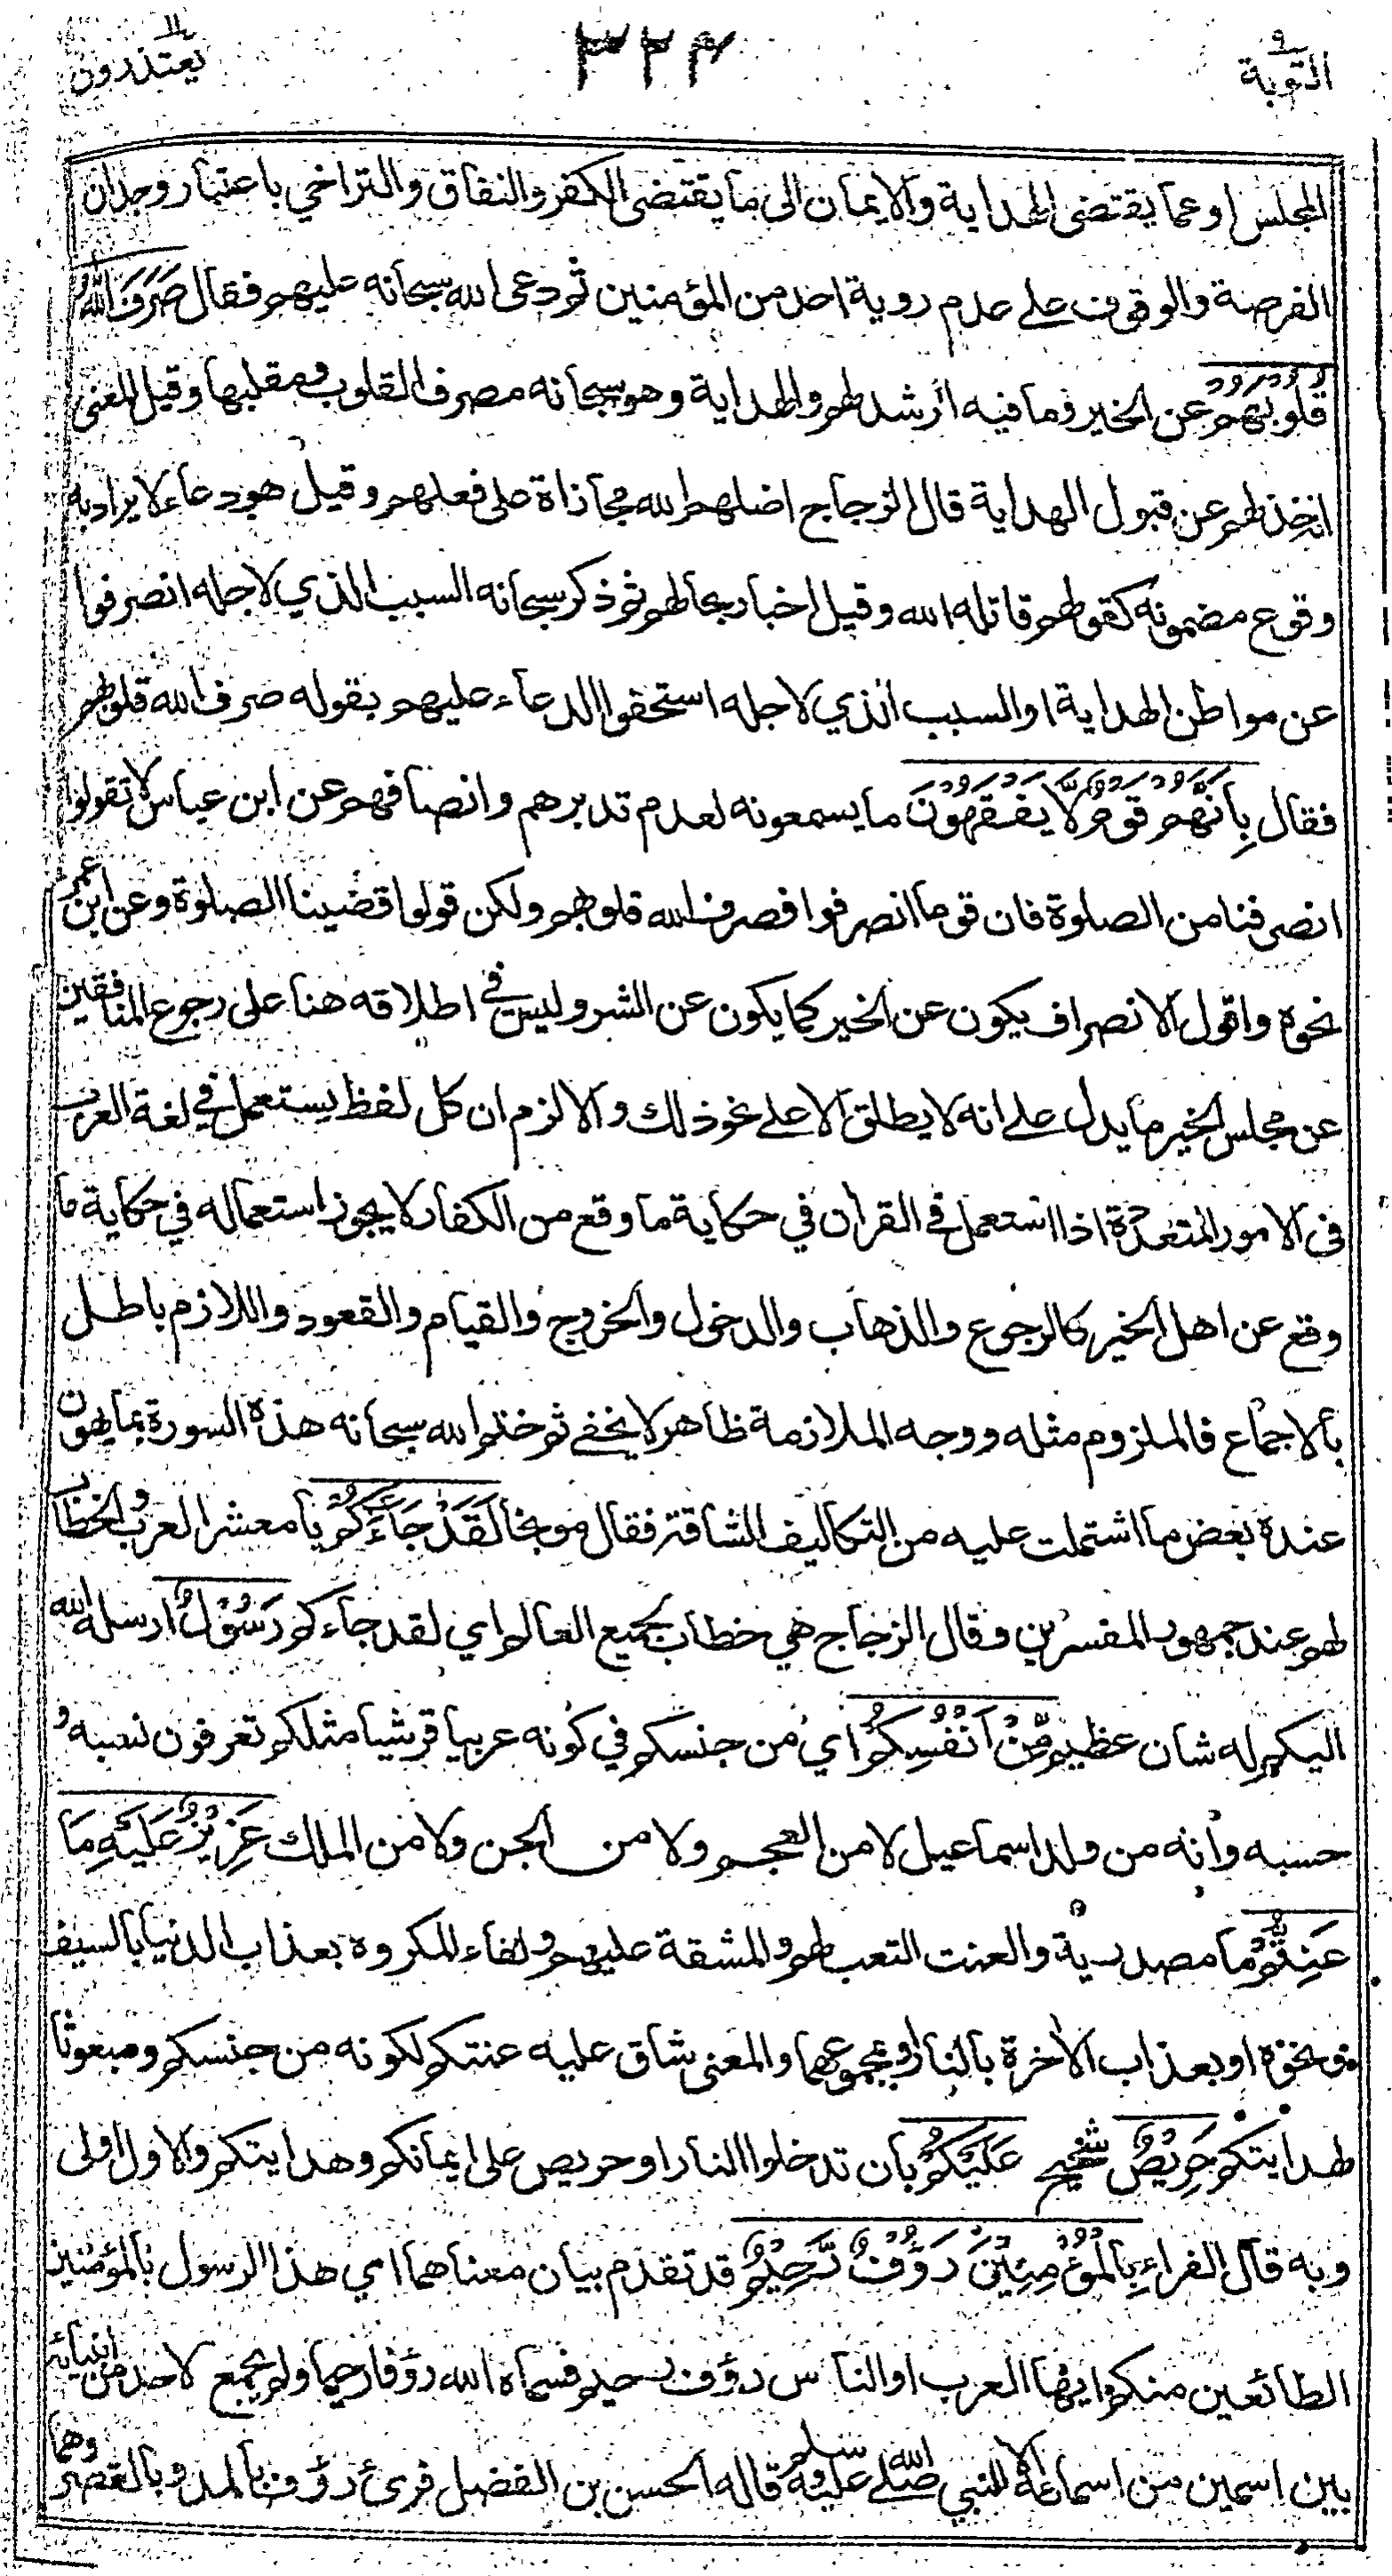 التوبة ٩
٣٢٤
يعتذرون ١١
المجلس او عما يقتضى الهداية والايمان الى ما يقتضى الكفر والنفاق والتراخي باعتبار وجدان
الفرصة والوقوف على عدم روية احد من المؤمنين ثم دعى الله سبحانه عليهم فقال صَرَفَ اللهُ
قُلُوْبَهُمْ عن الخير وما فيه الرشد لهم والهداية وهو سبحانه مصرف القلوب ومقلبها وقيل المعنى
انخذلهم عن قبول الهداية قال الزجاج اضلهم الله مجازاة على فعلهم وقيل هو دعاء لا يراد به
وقوع مضمونه كقولهم قاتله الله وقيل اخبار بحالهم ثم ذكر سبحانه السبب الذي لاجله انصرفوا
عن مواطن الهداية او السبب الذي لاجله استحقوا الدعاء عليهم بقوله صرف الله قلوبهم
فقال بِاَنَّهُمْ قَوْمٌ لَّا يَفْقَهُوْنَ ما يسمعونه لعدم تدبرهم وانصافهم عن ابن عباس لا تقولوا
انصرفنا من الصلوة فان قوما انصرفوا فصرف الله قلوبهم ولكن قولوا قضينا الصلوة وعن ابن عمر
نحوه واقول الانصراف يكون عن الخير كما يكون عن الشر وليس في اطلاقه هنا على رجوع المنافقين
عن مجلس الخير ما يدل على انه لا يطلق الا على نحو ذلك والا لزم ان كل لفظ يستعمل في لغة العرب
فى الامور المتعددة اذا استعمل في القران في حكاية ما وقع من الكفار لا يجوز استعماله في حكاية ما
وقع عن اهل الخير كالرجوع والذهاب والدخول والخروج والقيام والقعود واللازم باطل
بالاجماع فالملزوم مثله ووجه الملازمة ظاهر لا يخفى ثم ختم الله سبحانه هذه السورة بما يهون
عنده بعض ما اشتملت عليه من التكاليف الشاقة فقال موبخا لَقَدْ جَآءَكُمْ يا معشر العرب والخطاب
لهم عند جمهور المفسرين وقال الزجاج هي خطاب لجميع العالم اي لقد جاءكم رَسُوْلٌ ارسله الله
اليكم له شان عظيم مِّنْ اَنْفُسِكُمْ اي من جنسكم في كونه عربيا قرشيا مثلكم تعرفون نسبه و
حسبه وانه من ولد اسماعيل لا من العجم ولا من الجن ولا من الملك عَزِيْزٌ عَلَيْهِ مَا
عَنِتُّمْ ما مصدرية والعنت التعب لهم والمشقة عليهم ولقاء المكروه بعذاب الدنيا بالسيف
ونحوه او بعذاب الاخرة بالنار او بمجموعهما والمعنى شاق عليه عنتكم لكونه من جنسكم ومبعوثا
لهدايتكم حَرِيْصٌ شحيح عَلَيْكُمْ بان تدخلوا النار او حريص على ايمانكم وهدايتكم والاول اولى
وبه قال الفراء بِالْمُؤْمِنِيْنَ رَءُوْفٌ رَّحِيْمٌ قد تقدم بيان معناهما اي هذا الرسول بالمؤمنين
الطائعين منكم ايها العرب او الناس رؤف رحيم فسماه الله رؤفا رحيما ولم يجمع لاحد من انبيائه
بين اسمين من اسمائه الا للنبي صلى الله عليه وسلم قاله الحسن بن الفضل قرئ رؤف بالمد وبالقصر وهما